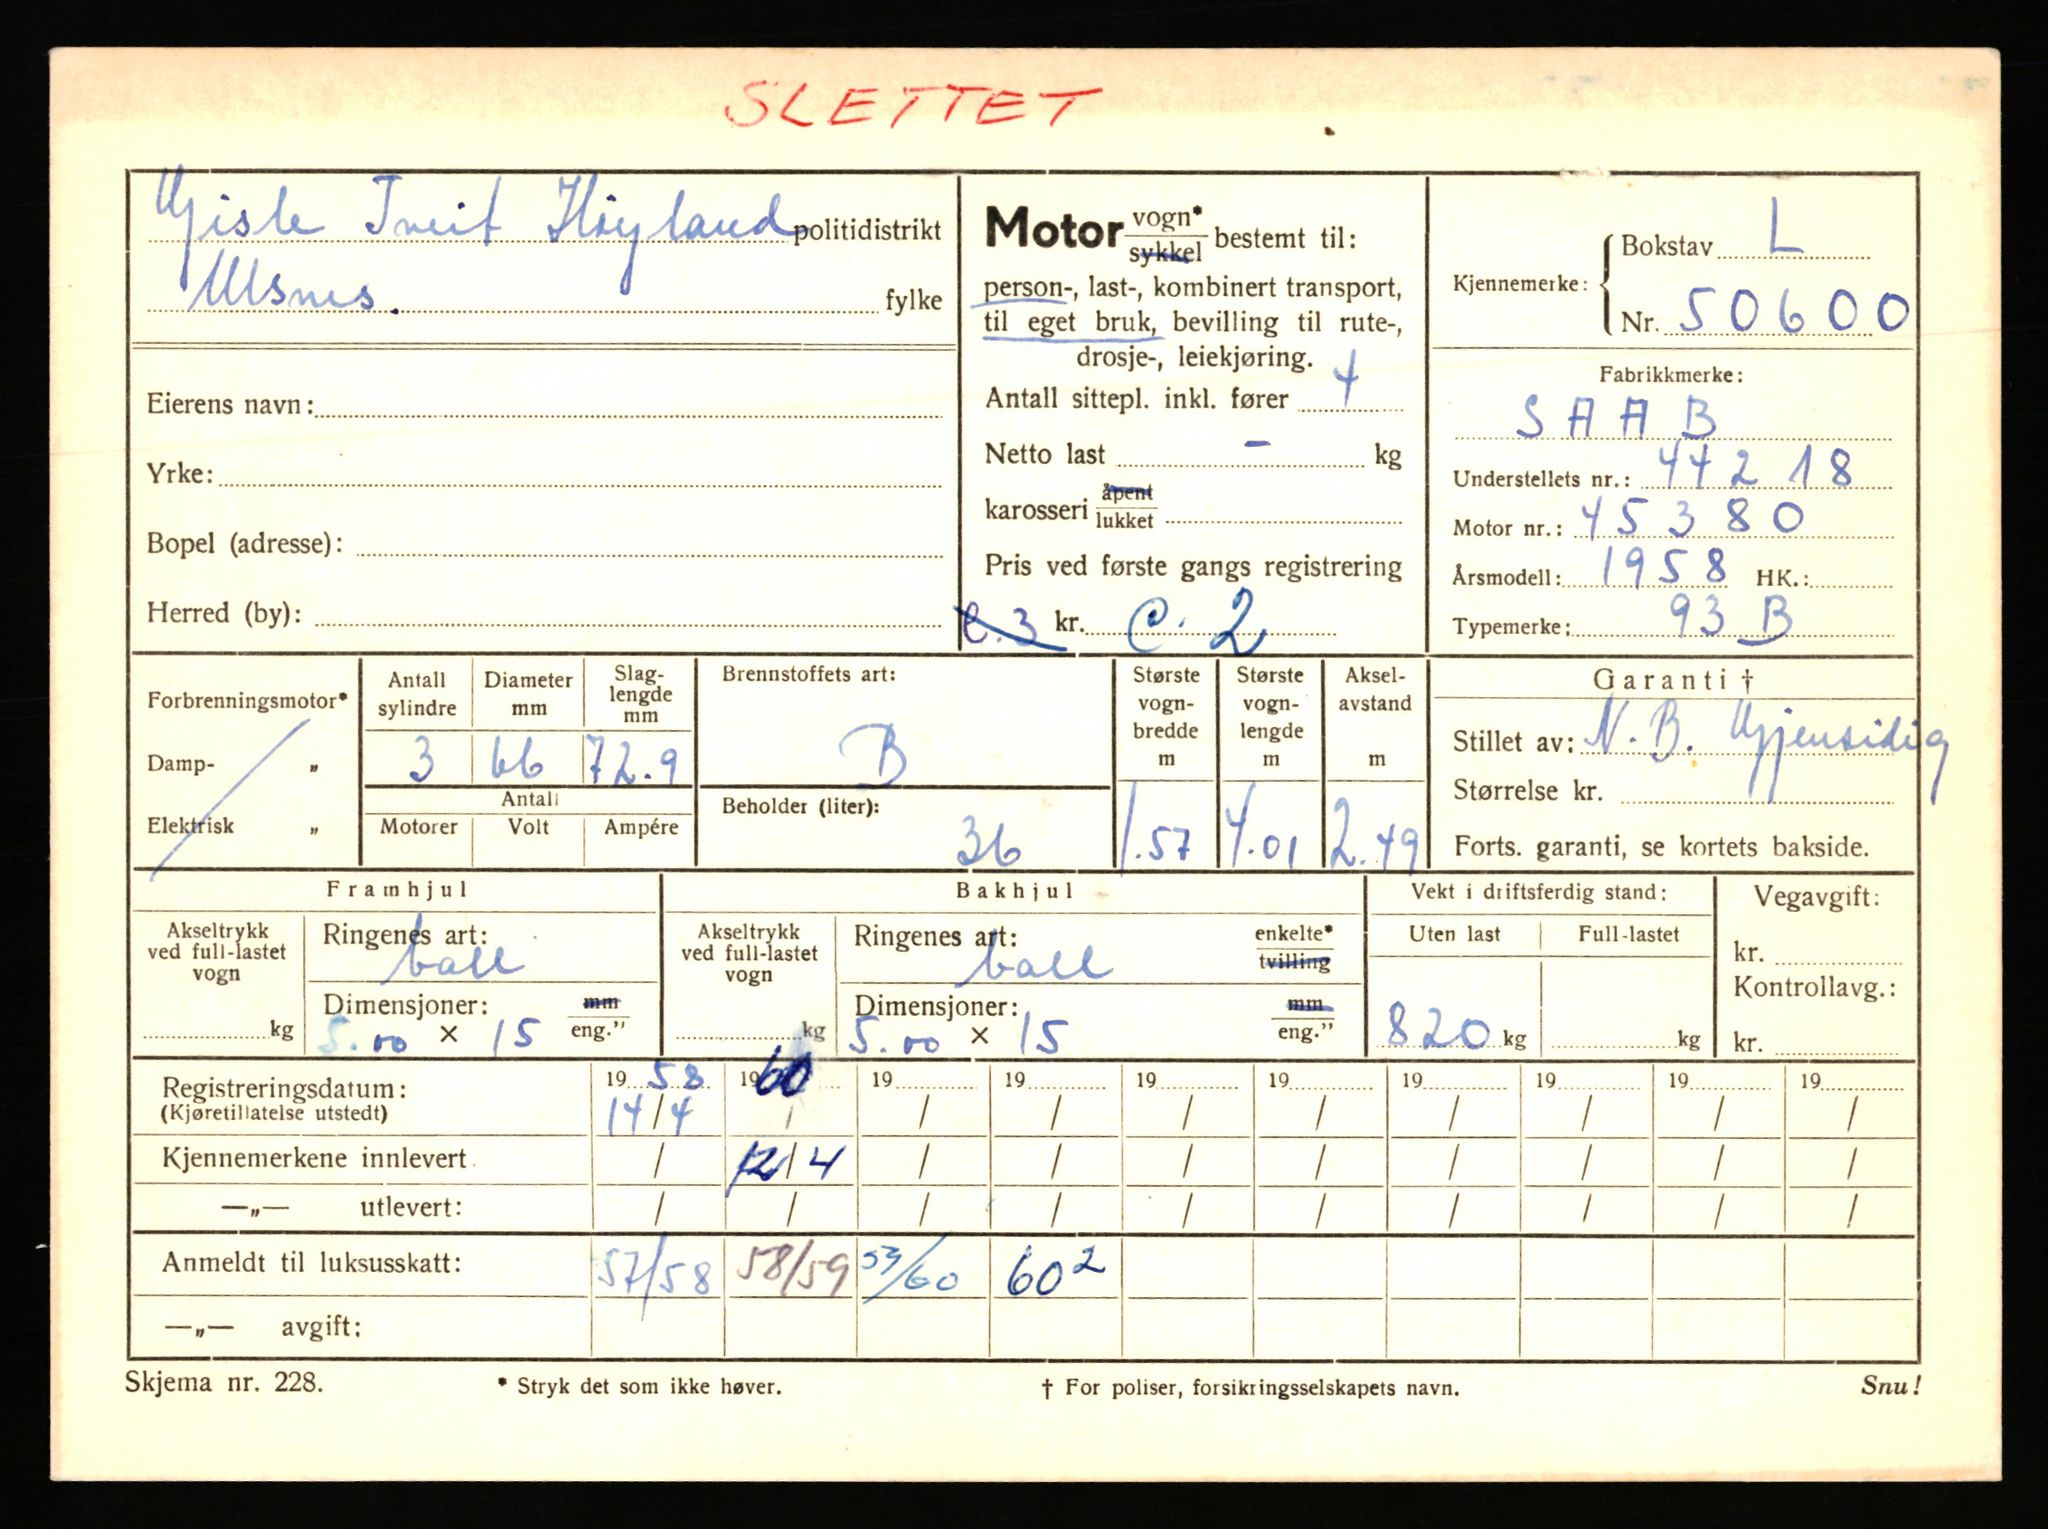 SLETTET
Gisle Tveit Høyland politidistrikt
Ulsnes. fylke
Eierens navn:
Yrke:
Bopel (adresse):
Herred (by):
Motor vogn* sykkel bestemt til:
person-, last-, kombinert transport,
til eget bruk, bevilling til rute-,
drosje-, leiekjøring.
Antall sittepl. inkl. fører 4
Netto last - kg
karosseri åpent lukket
Pris ved første gangs registrering
C.3 kr. C. 2
Kjennemerke: Bokstav L
Nr. 50600
Fabrikkmerke:
SAAB
Understellets nr.: 44218
Motor nr.: 45380
Årsmodell: 1958 HK.:
Typemerke: 93 B
Forbrenningsmotor*
Damp- „
Elektrisk „
Antall sylindre
Diameter mm
Slag-lengde mm
3 66 72.9
Antall
Motorer Volt Ampére
Brennstoffets art:
B
Beholder (liter):
36
Største vogn-bredde m
1.57
Største vogn-lengde m
4.01
Aksel-avstand m
2.49
Garanti †
Stillet av: N.B. Gjensidig
Størrelse kr.
Forts. garanti, se kortets bakside.
Framhjul
Akseltrykk ved full-lastet vogn
kg
Ringenes art:
ball
Dimensjoner: mm
5.00 × 15 eng."
Bakhjul
Akseltrykk ved full-lastet vogn
kg
Ringenes art: enkelte*
ball tvilling
Dimensjoner: mm
5.00 × 15 eng."
Vekt i driftsferdig stand:
Uten last Full-lastet
820 kg kg
Vegavgift:
kr.
Kontrollavg.:
kr.
Registreringsdatum: 19 58 19 60 19 19 19 19 19 19 19 19
(Kjøretillatelse utstedt) 14/4 / / / / / / / / /
Kjennemerkene innlevert / 12/4 / / / / / / / /
—„— utlevert: / / / / / / / / / /
Anmeldt til luksusskatt: 57/58 58/59 59/60 60 2
—„— avgift:
Skjema nr. 228. * Stryk det som ikke høver. † For poliser, forsikringsselskapets navn. Snu!